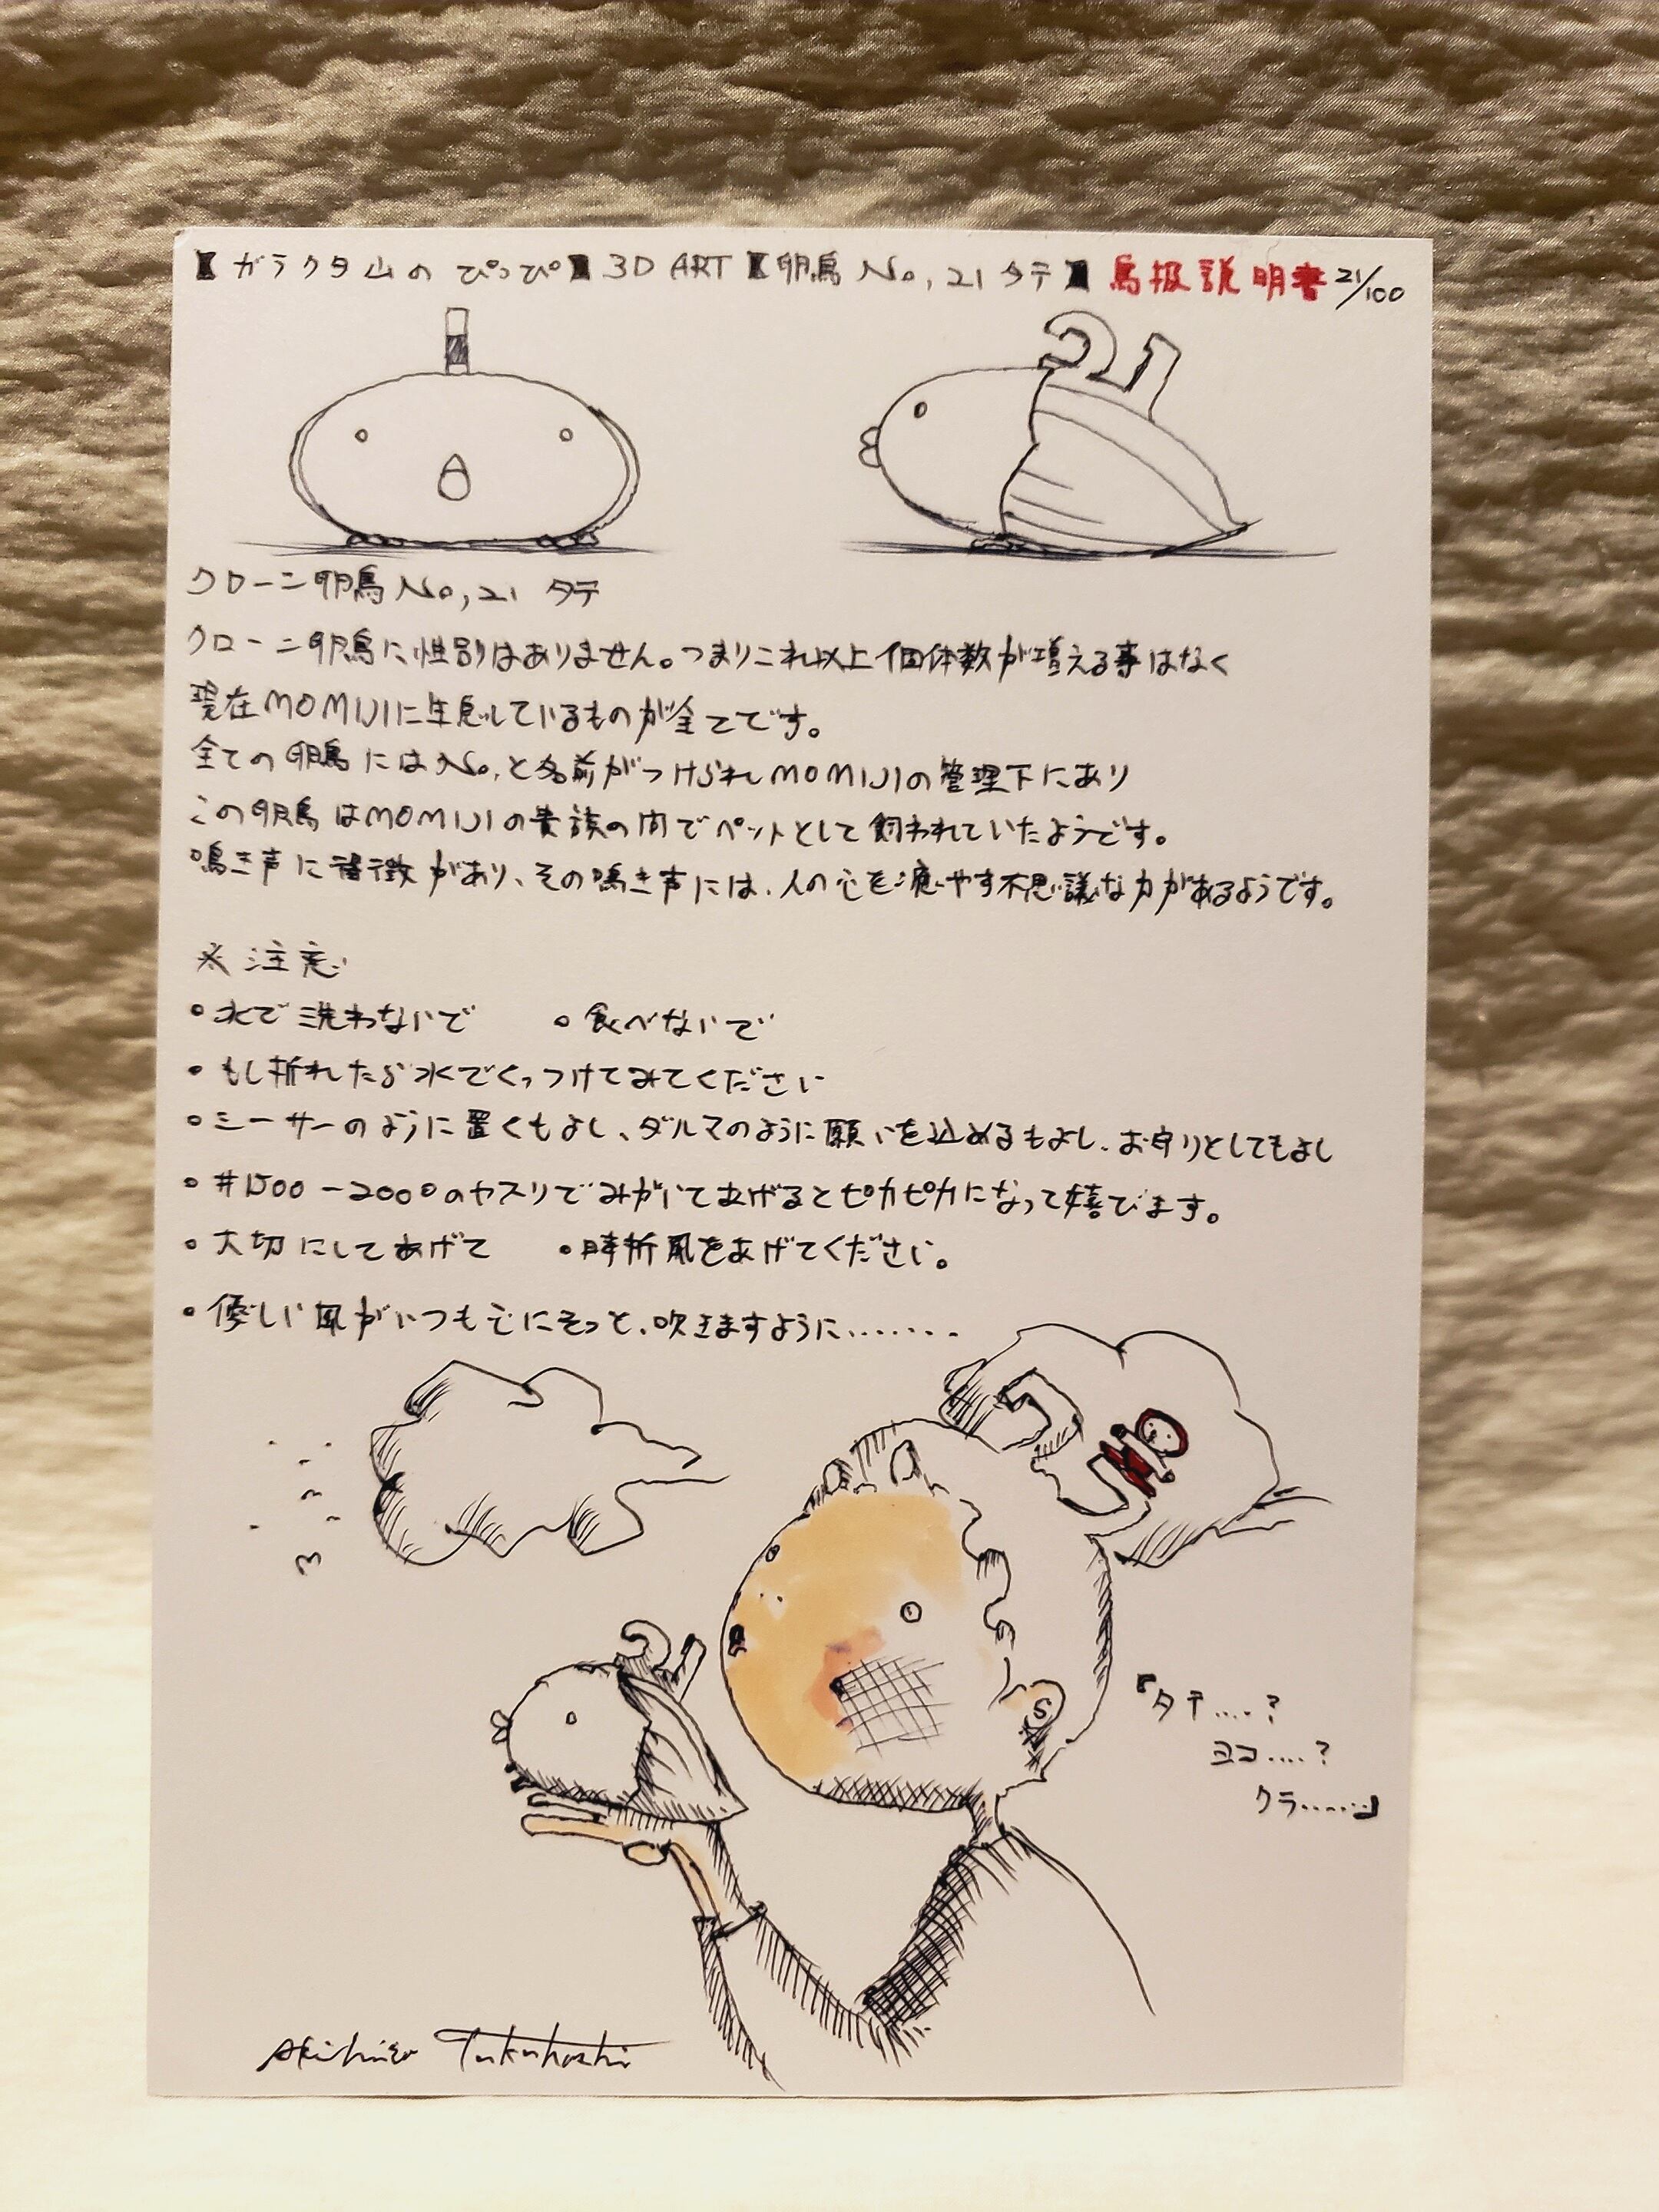 【ガラクタ山のぴっぴ】3D ART【卵鳥 No,21 タテ】鳥扱説明書 21/100
21
クローン卵鳥 No,21 タテ
クローン卵鳥に性別はありません。つまりこれ以上個体数が増える事はなく
現在MOMIJIに生息しているものが全てです。
全ての卵鳥にはNo,と名前がつけられMOMIJIの管理下にあり
この卵鳥はMOMIJIの貴族の間でペットとして飼われていたようです。
鳴き声に特徴があり、その鳴き声には、人の心を癒やす不思議な力があるようです。
※注意
・水で洗わないで ・食べないで
・もし折れたら水でくっつけてみてください
・シーサーのように置くもよし、ダルマのように願いを込めるもよし、お守りとしてもよし
・#1500-2000のヤスリでみがいてあげるとピカピカになって嬉びます。
・大切にしてあげて ・時折風をあげてください。
・優しい風がいつも心にそっと、吹きますように........
21
『タテ....?
ヨコ....?
クラ......』
Akihiro Tukuhashi